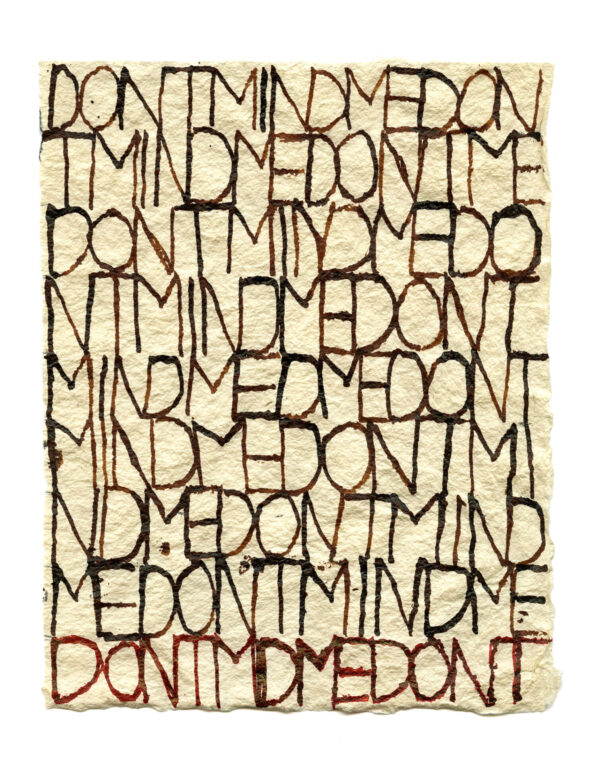 DONTMINDMEDON
TMINDMEDONTME
DONTMINDMEDO
NTMINDMEDONT
MINDMEDMEDONT
MINDMEDONTMI
NDMEDONTMIND
MEDONTMINDME
DONTMDMEDONT